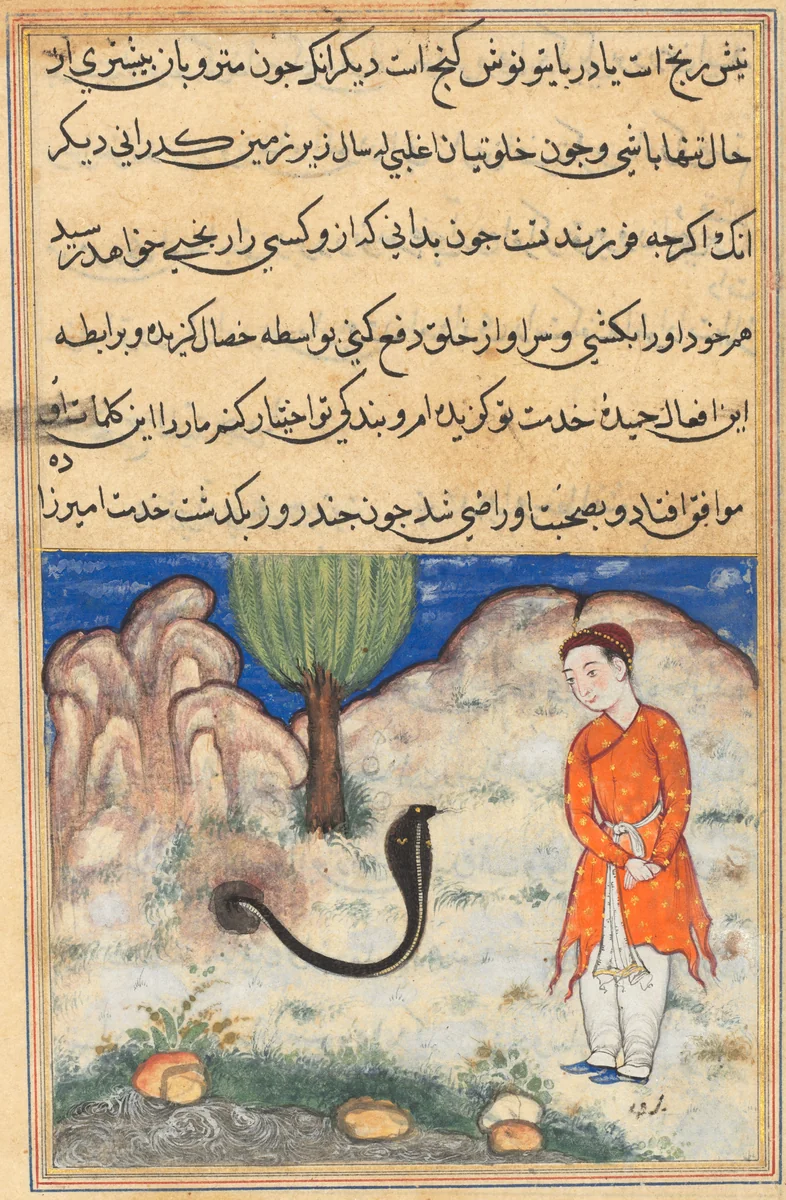 نیش ریخ است یا در با یتو نوش کنج است دیکر انک جون متروبان بیشتری از
حال تنها باشی و جون خلوتیان اغلبی له سال زیر زمین کدرانی دیکر
انک اکرجه فرزند تست جون بدانی که از و کسی را ریخی خواهد رسید
هم خود او را بکشی و سر او از خلق دفع کنی بواسطه خصال کزیده و برابطه
این افعال حمیدهٔ خدمت تو کزیده ام و بندکی تو اختیار کنم مار را این کلمات او
ده
موافق افتاد و بصحبت او راضی شد جون جند روز بکذشت خدمت امیرزا